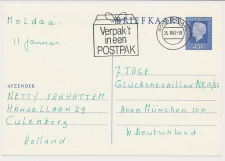 Moldau.
11 Januar.
BRIEFKAART
Verpak't
in een
POSTPAK
45c
AFZENDER
NETTY VAN HATTEM
HANDELLAAN 29
Culenborg
Holland
7 TAGE
GLÜCKSMEDAILLON NR
8000 MÜNCHEN 100
W Deutschland.